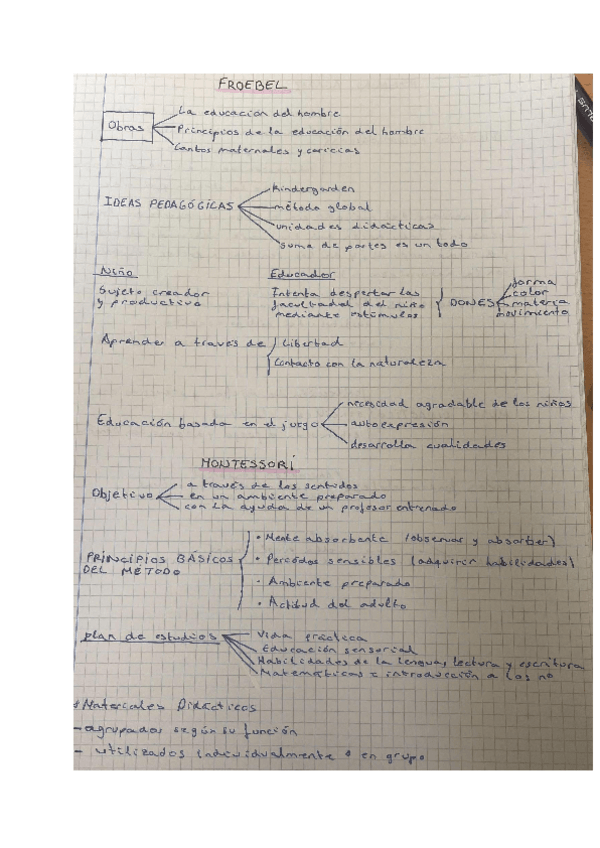 FROEBEL
La educación del hombre
Obras
Principios de la educación del hombre
Cantos maternales y caricias
Kindergarden
IDEAS PEDAGÓGICAS
método global
unidades didácticas
suma de partes es un todo
Niño
Educador
Sujeto creador y productivo
Intenta despertar las facultades del niño mediante estímulos
DONES
forma
color
materia
movimiento
Aprender a través de
Libertad
Contacto con la naturaleza
necesidad agradable de los niños
Educación basada en el juego
autoexpresión
desarrolla cualidades
MONTESSORI
a través de los sentidos
Objetivo
en un ambiente preparado
con la ayuda de un profesor entrenado
• Mente absorbente (observar y absorber)
PRINCIPIOS BÁSICOS DEL MÉTODO
• Periódos sensibles (adquirir habilidades)
• Ambiente preparado
• Actitud del adulto
plan de estudios
Vida práctica
Educación sensorial
Habilidades de la lengua, lectura y escritura
Matemáticas = introducción a los no
* Materiales Didácticos
- agrupados según su función
- utilizados individualmente o en grupo